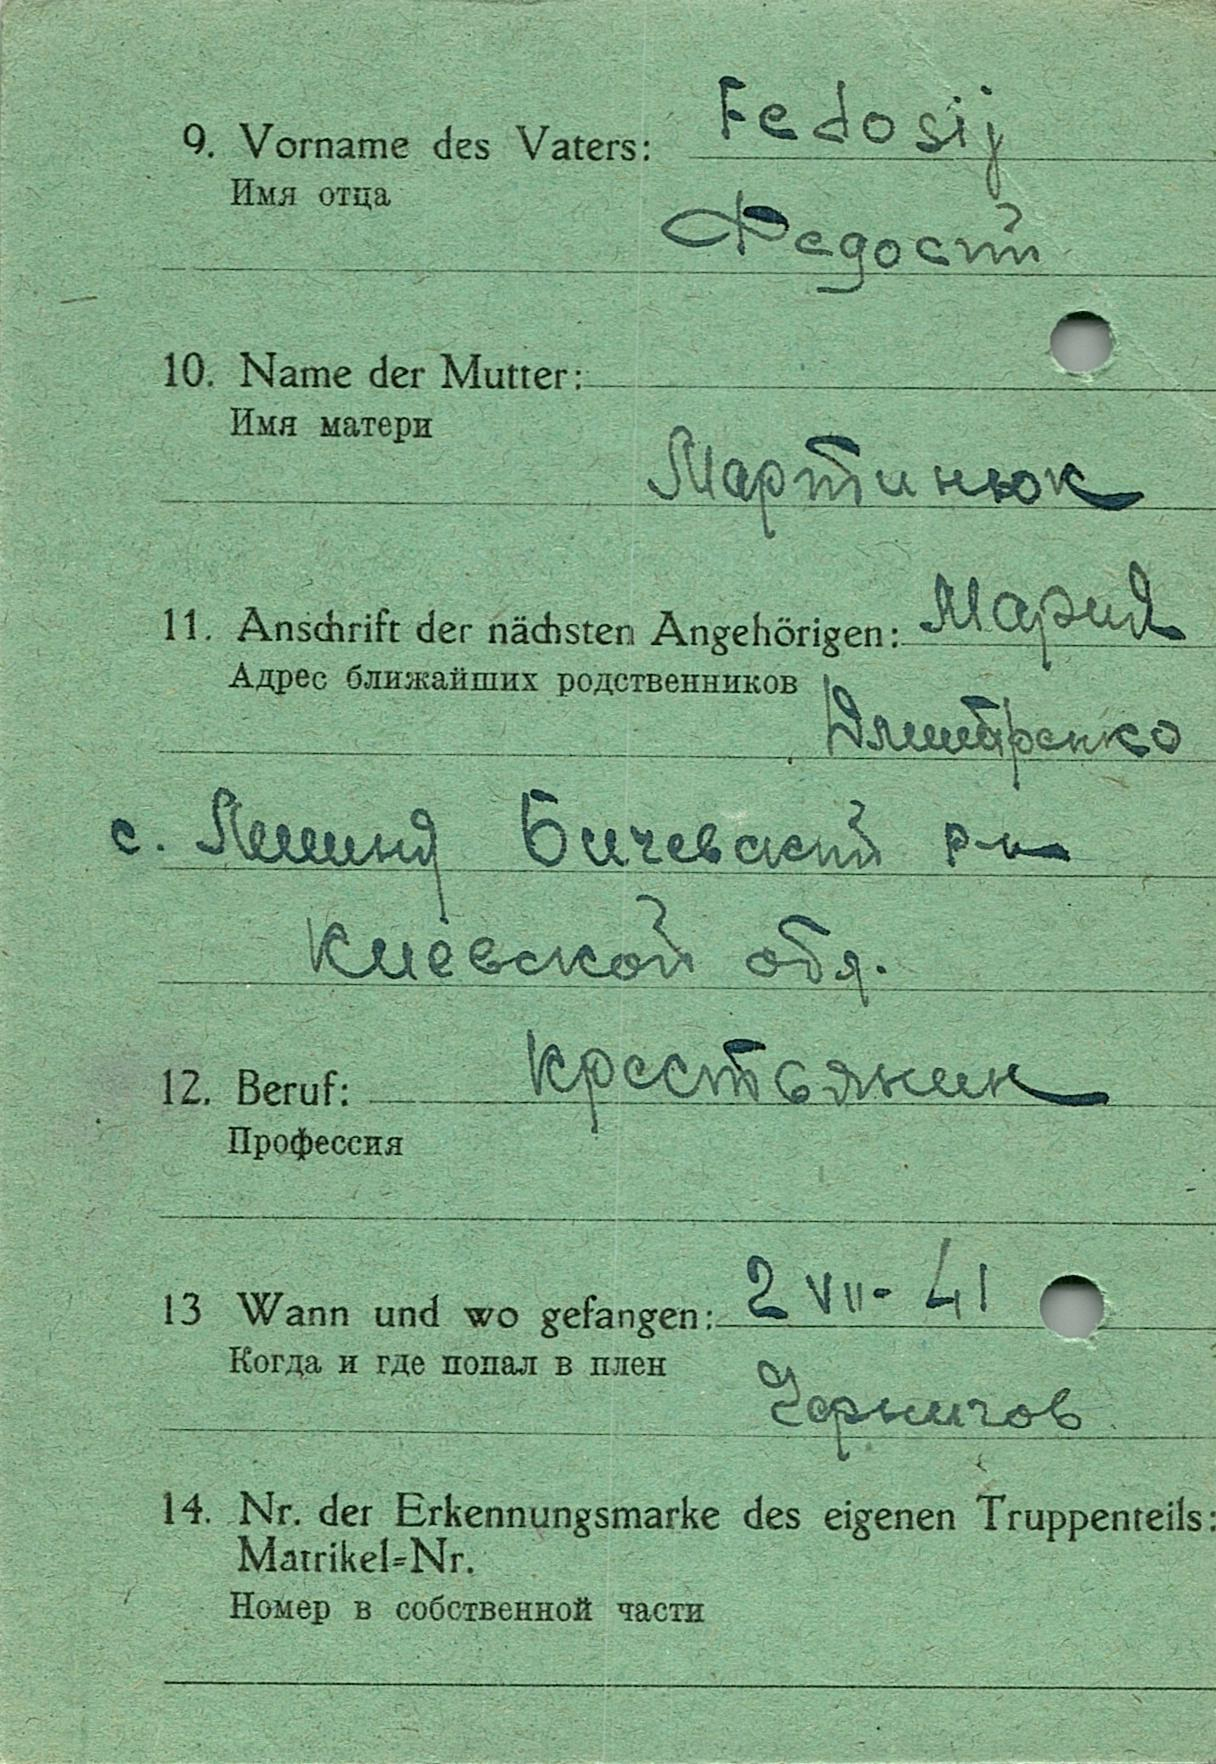 9. Vorname des Vaters: Fedosij
Имя отца
Федосий
10. Name der Mutter:
Имя матери
Мартинюк
11. Anschrift der nächsten Angehörigen: Мария
Адрес ближайших родственников
Дямитренко
с. Бичевский р-н
Киевской обл.
12. Beruf: крестьянин
Профессия
13 Wann und wo gefangen: 2 VII- 41
Когда и где попал в плен
14. Nr. der Erkennungsmarke des eigenen Truppenteils:
Matrikel=Nr.
Номер в собственной части